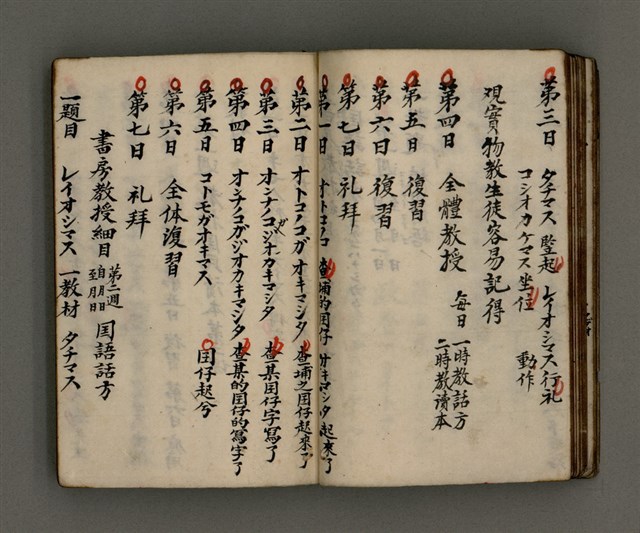 第三日 タチマス 竪起 レイオシマス 行礼
コシオカケマス 坐位 動作
現實物教生徒容易記得
第四日 全體教授 每日 一時教話方
二時教讀本
第五日 復習
第六日 復習
第七日 礼拜
第一日 オトコノコ 查埔的囝仔 オキマシタ 起來了
第二日 オトコノコガオキマシタ 查埔之囝仔起來了
第三日 オンナノコガジオカキマシタ 查某囝仔字寫了
第四日 オンナノコガジオカキマシタ 查某的囝仔的寫字了
第五日 コトモガオキマス 囝仔起兮
第六日 全体復習
第七日 礼拜
書房教授細目 第二週 自 月 日 至 月 日 国語話方
一題目 レイオシマス 一教材 タチマス